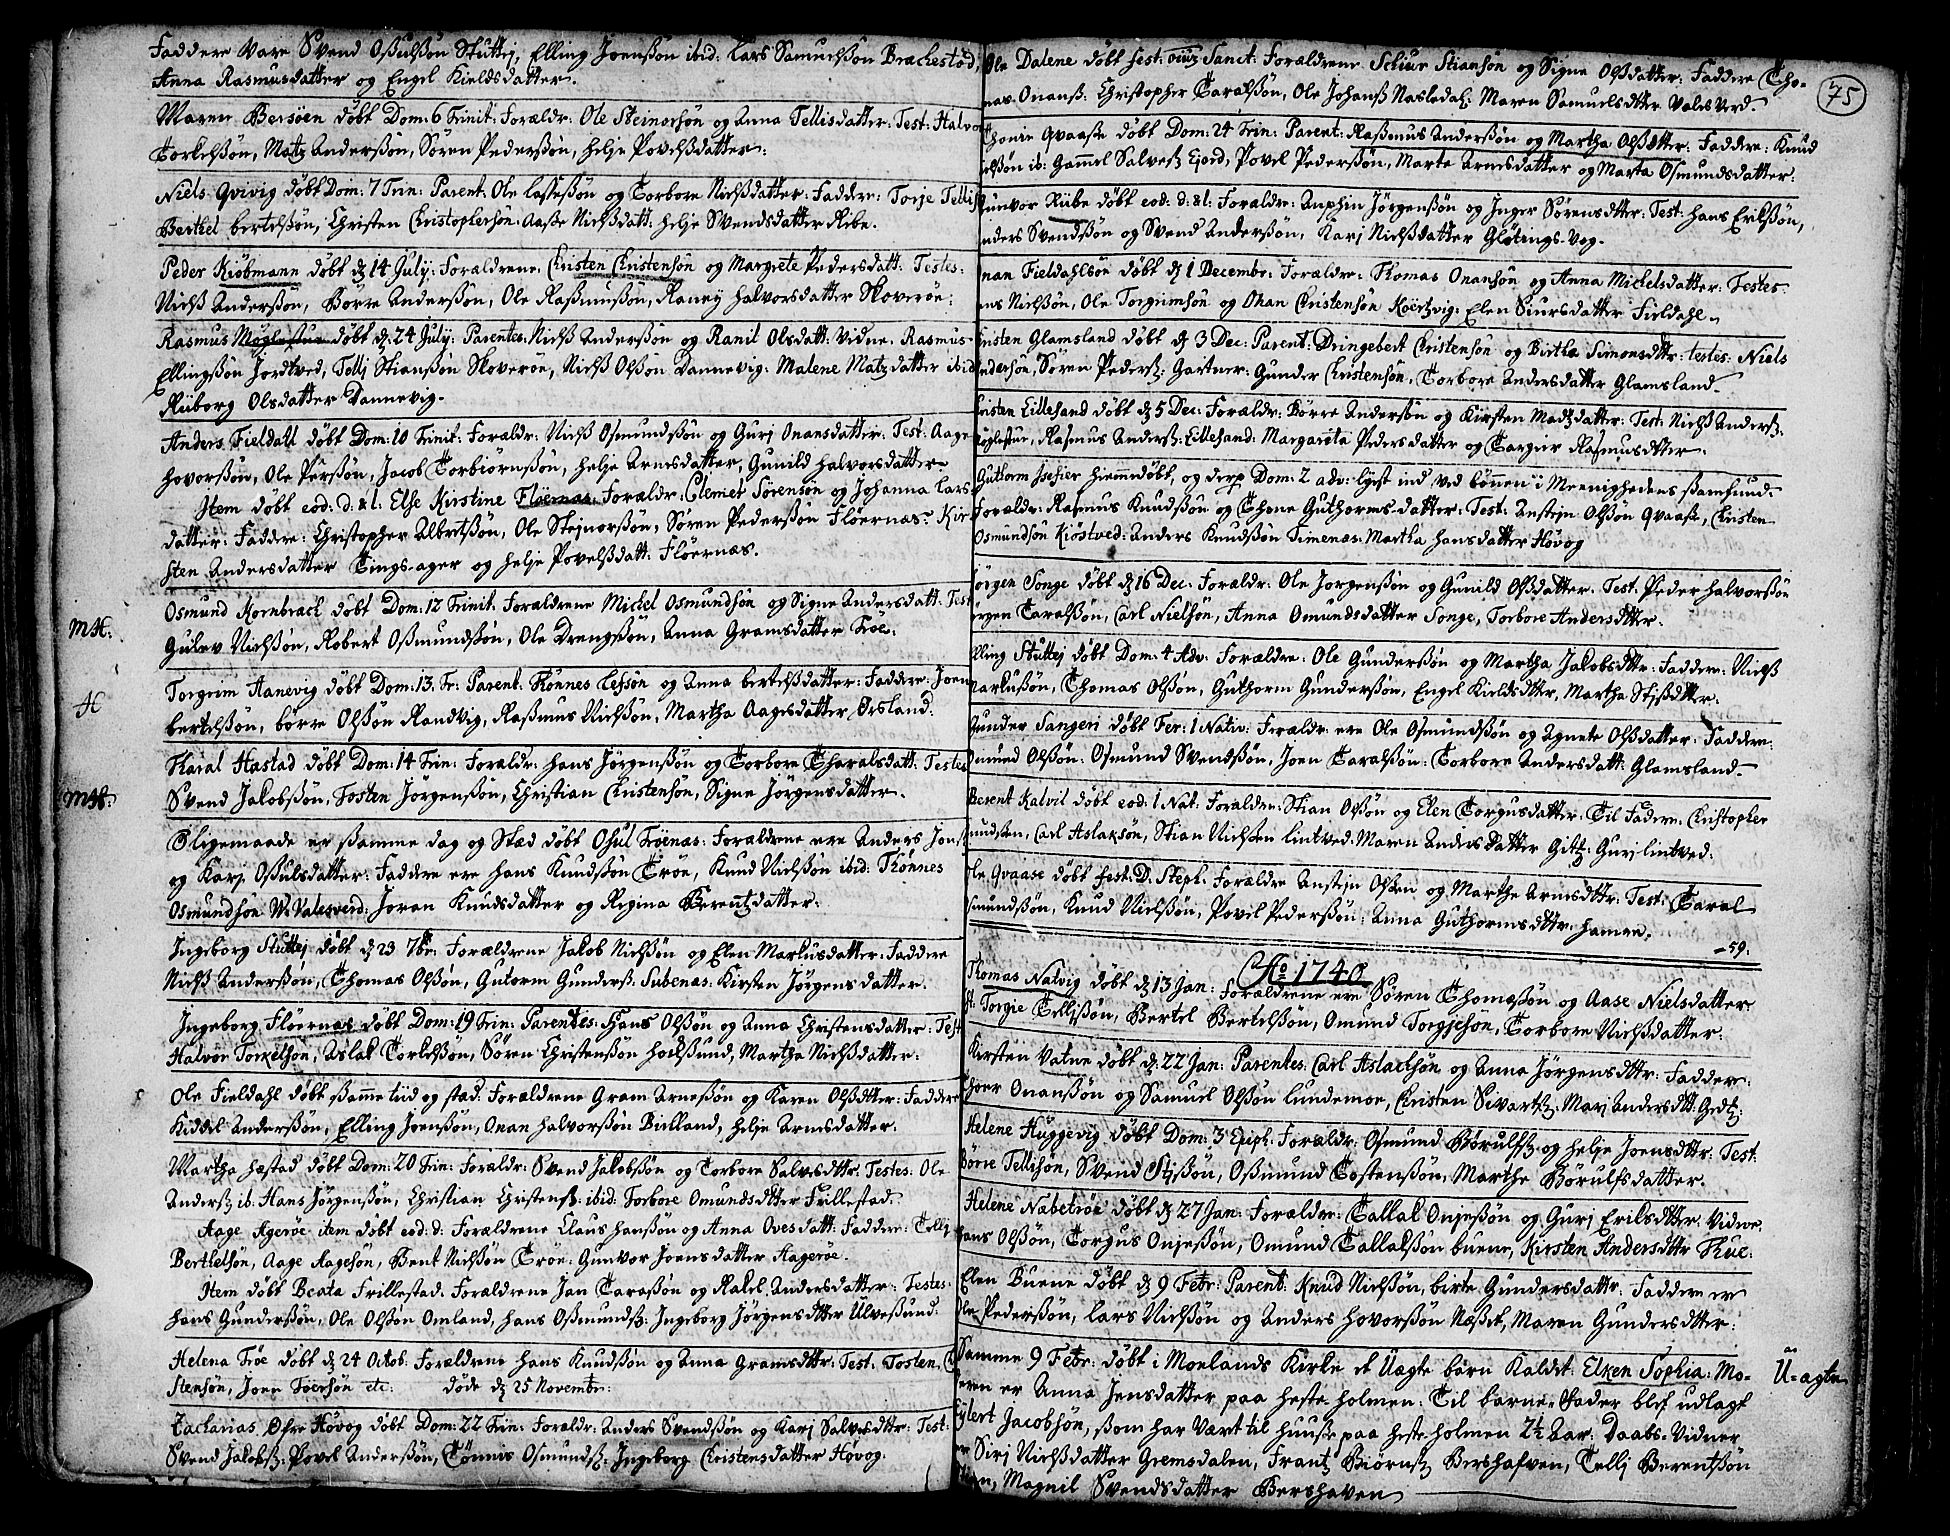 Faddere vare Svend Oßulßøn Stuttej, Elling Joenßøn ibid: Lars Samuelßøn Brachestød,
Anna Rasmusdatter og Engel Kieldsdatter.
Maren Bersøen døbt Dom: 6 Trinit: Foraldr: Ole Steinorsøn og Anna Tellisdatter: Test: Halvor
Torkelßøn, Matz Anderßøn, Søren Pederßøn, helje Povelßdatter:
Niels Qvivig døbt Dom: 7 Trin: Parent: Ole laßeßøn og Torbore Nielßdatter: Faddere: Torje Tellisß
Berthel bertelßøn, Christen Christophersøn: Aaße Nielßdatt: helje Svendsdatter Ribe.
Peder Kiøbmann døbt dẽ 14 July: Foraldrene: Christen Christensøn og Margrete Pedersdatt: Testes:
Nielß Anderßøn, Børre Anderßøn, Ole Raßmusßøn, Raney halvorsdatter Skoverøe:
Rasmus Møglestue døbt dẽ 24 July: Parentes: Nielß Anderßøn og Ranil Olsdatt: Vidne: Rasmus
Ellingßøn Jordtved, Tellj Stianßøn Skoverøe, Nielß Olßøn Dannevig: Malene Matzdatter ibid
Riiborg Olsdatter Dannevig.
Anders Fieldall døbt Dom: 10 Trinit: Foraldr: Nielß Osmundßøn og Gurj Onansdatter: Test: Aage
hovorßøn, Ole Perßøn, Jacob Torbiørnßøn, helje Arnesdatter, Gunild halvorsdatter
Item døbt eod: d: & l: Else Kirstine Fløernas: Foraldr: Clemet Sørensøn og Johanna Lars
datter: Faddere: Christopher Albretßøn, Ole Stejnorßøn, Søren Pederßøn Fløernas: Kir
sten Andersdatter Tings-ager og helje Povelßdatt: Fløernas.
MH:
Osmund Kornbrach døbt Dom: 12 Trinit: Foraldrene Michel Osmundsøn og Signe Andersdatt: Test
Gulev Nielßøn, Robert Oßmundßøn, Ole Drengßøn, Anna Gramsdatter Troe.
H
Torgrim Aanevig døbt Dom: 13. Tr: Parent: Thønnes Lefsøn og Anna bertelßdatter: Faddere: Joen
bertelßøn, børre Olßøn Randvig, Raßmus Nielßøn, Martha Aagesdatter Ørsland:
MH:
Tharal Hastad døbt Dom: 14 Trin: Foraldr: hans Jørgenßøn og Torbore Tharalsdatt: Testes
Svend Jakobßøn, Tosten Jørgenßøn, Christian Christensøn, Signe Jørgensdatter.
Øligemaade er ßamme dag og Stad døbt Osul Trøenas: Foraldrene ere Anders Jonß
og Karj Oßulsdatter: Faddere ere hans Knudßøn Trøe, Knud Nielßøn ibid: Thønnes
Osmundsøn W: Valesverd: Joran Knudsdatter og Regina Berentzdatter:
Ingeborg Stuttej døbt dẽ 29 7br: Forældrene Jakob Nielßøn og Elen Markusdatter: Faddere
Nielß Anderßøn, Thomas Olßøn, Gutorm Gunderß: Tubenas: Kirsten Jørgensdatter.
Ingeborg Fløernas døbt Dom: 19 Trin: Parentes: Hans Olßøn og Anna Christensdatter: Test
Halvor Torkelsøn, Aslak Torkelßøn, Søren Christenßøn hoelßund, Martha Nielßdatter:
Ole Fieldahl døbt ßamme tiid og stad: Foraldrene Gram Arneßøn og Karen Olßdtter: Faddere
Kiddil Anderßøn, Elling Joenßøn, Onan halvorßøn Birkland, helje Arnesdatter.
Martha hæstad døbt Dom: 20 Trin: Foraldr: Svend Jakobßøn og Torbore Salvesdttr: Testes: Ole
Anderß ib: Hans Jørgenßøn, Christian Christensß: ibid: Torbore Omundsdtter Frillestad.
Aage Agerøe item døbt eod: d: Foraldrene Claus hanßøn og Anna Ovesdatt: Faddere: Tellj
Berthelsøn, Aage Aagesøn, Bent Nielßøn Trøe: Gunvor Joensdatter Aagerøe.
Item døbt Beata Frillestad: Foraldrene Jan Taraßøn og Rakel Andersdatter: Testes:
hans Gunderßøn, Ole Olßøn Omland, hans Oßmundß: Ingeborg Jørgensdtter Ulveßund:
Helena Trøe døbt dẽ 24 Octob: Foraldrene hans Knudßøn og Anna Gramsdttr: Test: Tosten
Stensøn, Joen Toersøn etc: døde dẽ 25 Novembr:
Zacharias Øfre Høvog døbt Dom: 22 Trin: Foraldr: Anders Svendßøn og Karj Salvesdttr: Test:
Svend Jakobß: Povel Anderßøn, Tønnis Osmundß: Ingeborg Christensdatter Høvog.
75
Ole Dalene døbt fest: oĩũ Sanct: Foraldrene Schiur Stiansøn og Signe Olßdatter: Faddere Tho-
mas Onanß: Christopher Taralßøn, Ole Johanß Nasledal: Maren Samuelsdtter Valesverd.
Thonie Qvaaße døbt Dom: 24 Trin: Parent: Raßmus Anderßøn og Martha Olßdtter: Faddere: Knud
Olßøn ib: Gammel Salvesß Ejord, Povel Pederßøn, Marte Arnesdatter og Marta Osmundsdatter:
Gunvor Ribe døbt eod: d: & l: Foraldr: Anphin Jørgensøn og Inger Sørensdtter: Test: hans Erikßøn,
Anders Svendßøn og Svend Anderßøn, Karj Nielßdatter Gløtings-vog.
Onan Fieldahlsøe døbt dẽ 1 Decembr: Foraldr: Thomas Onansøn og Anna Michelsdatter: Testes:
Nielßøn, Ole Torgrimsøn og Ohan Christensøn Kortzvig: Elen Siursdatter Fieldahl.
Christen Glamsland døbt dẽ 3 Dec: Parent: Dringebert Christensøn og Birthe Simonsdttr: testes: Niels
Andersøn, Søren Pedersß: Gartner: Gunder Christensøn, Torbore Andersdatter Glamsland.
Christen Lillesand døbt dẽ 5 Dec: Foraldr: Børre Anderßøn og Kirsten Madzdatter: Test: Nielß Andersß:
Møglestue, Rasmus Andersß: Lillesand: Margareta Pedersdatter og Targier Rasmusdtter.
Guthorm Isefier hiemmdøbt, og derp Dom: 2 adv: lyst ind ved bønnen i Meenighedens ßamfund.
Foraldr: Rasmus Knudßøn og Thone Guthorms-datter: Test: Anstejn Olßøn Qvaaße, Christen
Osmundsøn Kiøstved: Anders Knudßøn Timenæs: Martha hansdatter Høvog
Jørgen Songe døbt dẽ 16 Dec: Foraldr: Ole Jørgensøn og Gunild Olßdatter: Test: Peder halvorßøn
Jørgen Taralßøn, Carl Nielsøn, Anna Omundsdatter Songe, Torbore Andersdtter.
Elling Stuttej døbt Dom: 4 Adv: Forældre: Ole Gunderßøn og Martha Jakobsdttr: Faddere: Nielß
Markußøn, Thomas Olßøn, Guthorm Gunderßøn, Engel Kieldsdtter, Martha Stisßdtter.
Gunder Sangeri døbt Fer: 1 Nativ: Foraldr: ere Ole Osmundßøn og Agnete Olßdatter: Faddere:
Omund Olßøn: Osmund Svendßøn, Joen Taralßøn: Torbore Andersdatt: Glamsland.
Berent Kalvil døbt eod: 1 Nat: Foraldre: Stian Olßøn og Elen Torgusdatter: Til Faddere: Christopher
Carl Aslaksøn, Stian Nielsen lintved: Maren Anders datter Gitß: Gurj lintved:
Ole Qvaase døbt fest: D: Steph: Forældre Anstejn Olsen og Marthe Arnesdttr: Test: Taral
Osmundßøn, Knud Nielßøn, Povel Pederßøn: Anna Guthormsdttr: hamre.
-59:
Aõ 1740
Thomas Natvig døbt dẽ 13 Jan: Foraldrene ere Søren Thomaßøn og Aase Nielsdatter
Torgie Tellißøn, Bertel Bertelßøn, Omund Torgjesøn, Torbore Nielßdatter:
Kirsten Vatne døbt dẽ 22 Jan: Parentes: Carl Aslachsøn og Anna Jørgensdttr: Faddere:
Thoer Onanßøn og Samuel Olßøn Lundemoe, Christen Sivartß: Marj Andersdtt: Gedtß:
Helene Huggevig døbt Dom: 3 Epiph: Foraldr: Osmund Børulfß og helje Joensdttr: Test:
Børre Tellisøn, Svend Stißøn, Oßmund Tostenßøn, Marthe Børulfsdatter.
Helene Nabetrøe døbt dẽ 27 Jan: Foraldr: Tallak Onjeßøn og Gurj Eriksdtter: Vidne
hans Olßøn, Torgus Onjeßøn, Omund Tallakßøn buene, Kirsten Andersdttr Thue:
Elen Buene døbt dẽ 9 Febr: Parent: Knud Nielßøn, birte Gundersdattr: Faddere er
Ole Pederßøn, Lars Nielßøn og Anders hovorßøn Næset, Maren Gundersdtter:
Samme 9 Febr: døbt i Moelands Kirke et Uægte barn Kaldet: Elken Sophia: Mo-
U-ægte
eren er Anna Jensdatter paa heste holmen: Til barne-Fader blef udlagt
Eylert Jacobsøn, som har Vært til huuse paa heste holmen 2½ Aar: Daabs-Vidner
er Sirj Nielßdatter Gremsdalen, Frantz Biørnß Bershafven, Tellj Berentßøn
Magnil Svendsdatter Bershaven